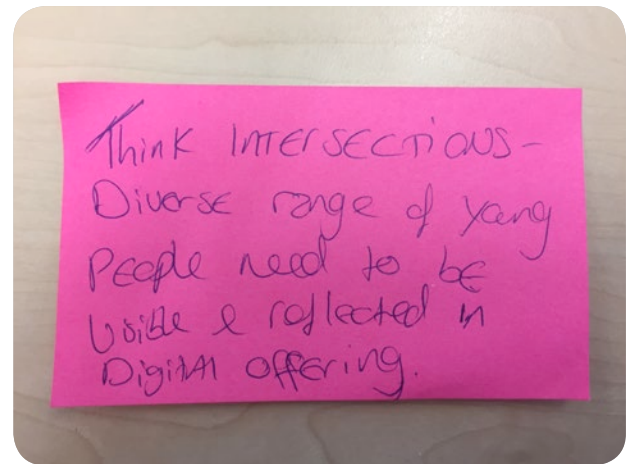 Think INTERSECTIONS -
Diverse range of young
People need to be
Visible & reflected in
Digital offering.